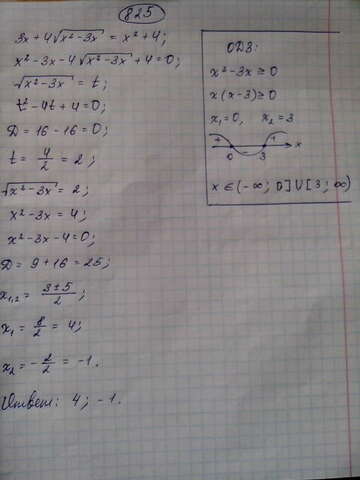 825
3x + 4√(x² - 3x) = x² + 4;
x² - 3x - 4√(x² - 3x) + 4 = 0;
√(x² - 3x) = t;
t² - 4t + 4 = 0;
D = 16 - 16 = 0;
t = 4/2 = 2;
√(x² - 3x) = 2;
x² - 3x = 4;
x² - 3x - 4 = 0;
D = 9 + 16 = 25;
x₁,₂ = (3 ± 5)/2;
x₁ = 8/2 = 4;
x₂ = -2/2 = -1.
Ответ: 4; -1.
ОДЗ:
x² - 3x ≥ 0
x(x - 3) ≥ 0
x₁ = 0, x₂ = 3
+ - + x
0 3
x ∈ (-∞; 0] ∪ [3; ∞)